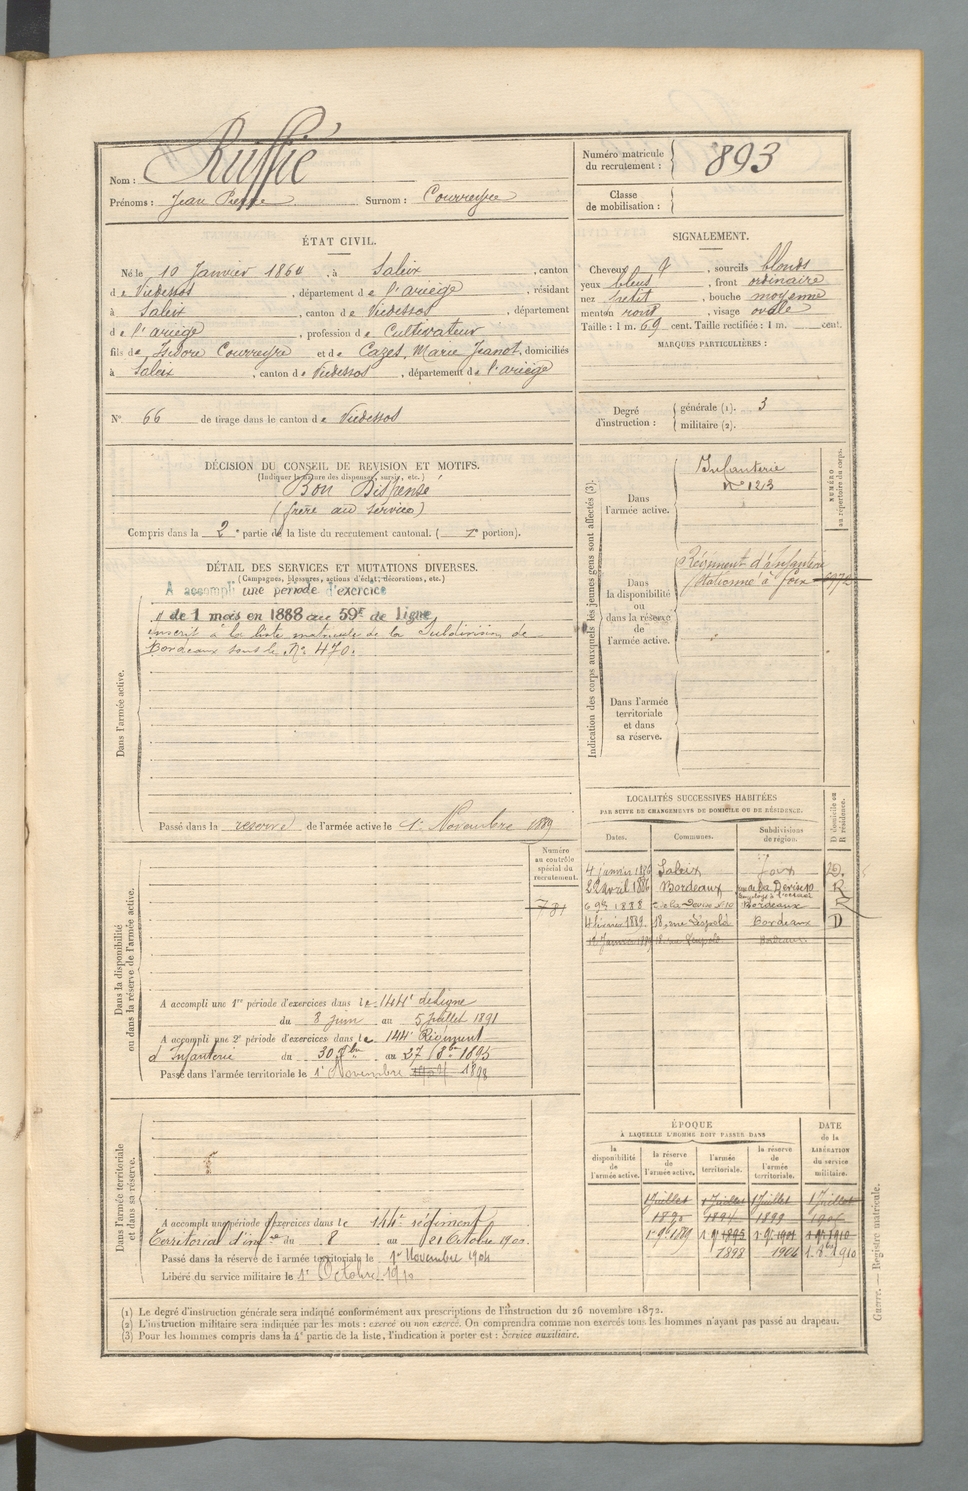 Nom : Ruffié
Prénoms : Jean Pierre Surnom : Courreyre
Numéro matricule du recrutement : 893
Classe de mobilisation :
ÉTAT CIVIL.
Né le 10 Janvier 1864, à Saleix, canton
de Vicdessos, département de l'ariège, résidant
à Saleix, canton de Vicdessos, département
de l'ariège, profession de Cultivateur
fils de Isidore Courreyre et de Cazes, Marie Jeanot, domiciliés
à Saleix, canton de Vicdessos, département de l'ariège
N° 66 de tirage dans le canton de Vicdessos
SIGNALEMENT.
Cheveux, sourcils blonds
yeux bleus, front ordinaire
nez petit, bouche moyenne
menton rond, visage ovale
Taille : 1 m. 69 cent. Taille rectifiée : 1 m. cent.
MARQUES PARTICULIÈRES :
Degré d'instruction : générale (1). 3
militaire (2).
DÉCISION DU CONSEIL DE REVISION ET MOTIFS.
(Indiquer la nature des dispenses, sursis, etc.)
Bon Dispensé
(frère au service)
Compris dans la 2e partie de la liste du recrutement cantonal. ( portion).
DÉTAIL DES SERVICES ET MUTATIONS DIVERSES.
(Campagnes, blessures, actions d'éclat, décorations, etc.)
Dans l'armée active.
A accompli une période d'exercice
de 1 mois en 1888 au 59e de ligne
inscrit à la liste matricule de la Subdivision de
Bordeaux sous le N° 470.
Passé dans la réserve de l'armée active le 1er Novembre 1889
Indication des corps auxquels les jeunes gens sont affectés (3).
NUMÉRO au répertoire du corps.
Dans l'armée active.
Infanterie
n° 123
Dans la disponibilité ou dans la réserve de l'armée active.
Régiment d'Infanterie
stationné à Foix
Dans l'armée territoriale et dans sa réserve.
LOCALITÉS SUCCESSIVES HABITÉES
PAR SUITE DE CHANGEMENTS DE DOMICILE OU DE RÉSIDENCE.
Dates. Communes. Subdivisions de région. D domicile ou R résidence.
4 janvier 1886 Saleix Foix D.
22 avril 1886 Bordeaux rue de la Devise 10 R
1888 de la Devise N° 10 Bordeaux R
4 février 1889 18, rue Léopold Bordeaux D
Dans la disponibilité ou dans la réserve de l'armée active.
Numéro au contrôle spécial du recrutement.
781
A accompli une 1re période d'exercices dans le 144e de ligne
du 8 juin au 5 juillet 1891
A accompli une 2e période d'exercices dans le 144e Régiment
d'Infanterie du 30 au 27 8bre 1895
Passé dans l'armée territoriale le 1er Novembre 1898
Dans l'armée territoriale et dans sa réserve.
A accompli une période d'exercices dans le 144e régiment
Territorial d'infrie du 8 au 21 Octobre 1900.
Passé dans la réserve de l'armée territoriale le 1er Novembre 1904
Libéré du service militaire le 1er Octobre 1910
ÉPOQUE
À LAQUELLE L'HOMME DOIT PASSER DANS
DATE de la LIBÉRATION du service militaire.
la disponibilité de l'armée active. la réserve de l'armée active. l'armée territoriale. la réserve de l'armée territoriale.
1 Juillet 1 Juillet 1 Juillet 1 Juillet
1890 1894 1899
1898 1904 1910
(1) Le degré d'instruction générale sera indiqué conformément aux prescriptions de l'instruction du 26 novembre 1872.
(2) L'instruction militaire sera indiquée par les mots : exercé ou non exercé. On comprendra comme non exercés tous les hommes n'ayant pas passé au drapeau.
(3) Pour les hommes compris dans la 4e partie de la liste, l'indication à porter est : Service auxiliaire.
Guerre. — Registre matricule.